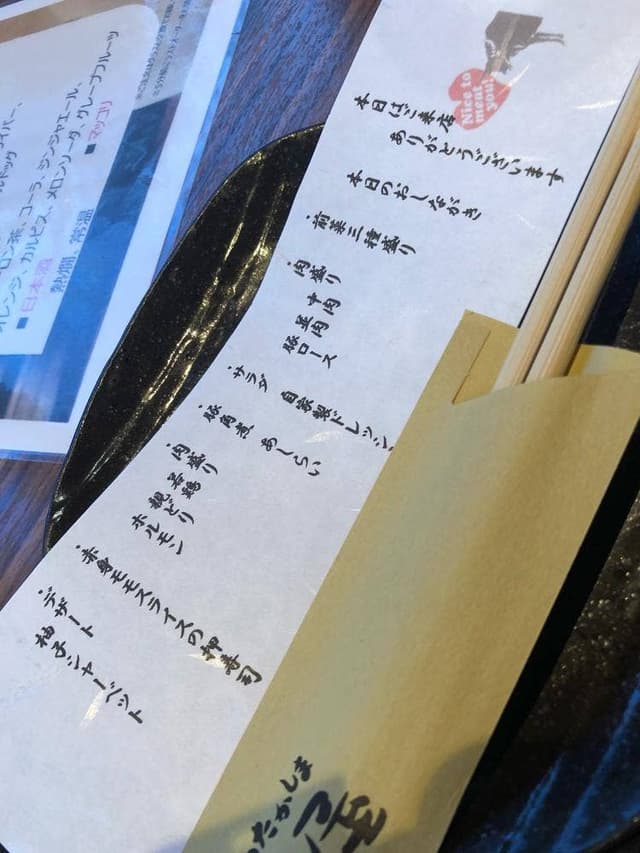 Nice to
meat
you!
本日はご来店
ありがとうございます
本日のおしながき
・前菜三種盛り
・肉盛り
中肉
並肉
豚ロース
・サラダ　自家製ドレッシ
・豚角煮　あしらい
・肉盛り
若鶏
親どり
ホルモン
・赤身モモスライスの押寿司
・デザート
柚子シャーベット
ロン茶、コーラ、ジンジャエール、
オレンジ、カルピス、メロンソーダ、グレープフルーツ
■日本酒
熱燗、常温
■マッコリ
たかしま